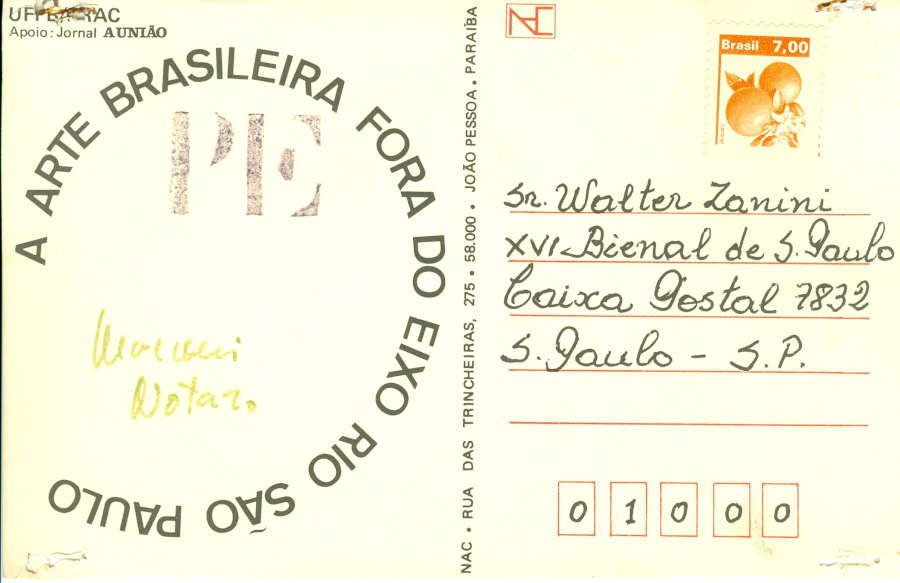 UFPB/PRAC
Apoio: Jornal A UNIÃO
A ARTE BRASILEIRA FORA DO EIXO RIO SÃO PAULO
PE
Marconi
Notaro
NAC • RUA DAS TRINCHEIRAS, 275 • 58.000 • JOÃO PESSOA • PARAÍBA
NAC
Brasil 7,00
Sr. Walter Zanini
XVI Bienal de S. Paulo
Caixa Postal 7832
S. Paulo - S.P.
0 1 0 0 0